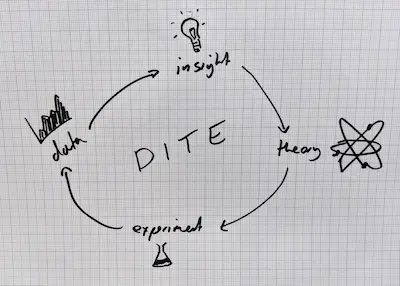 insight
data
DITE
theory
experiment